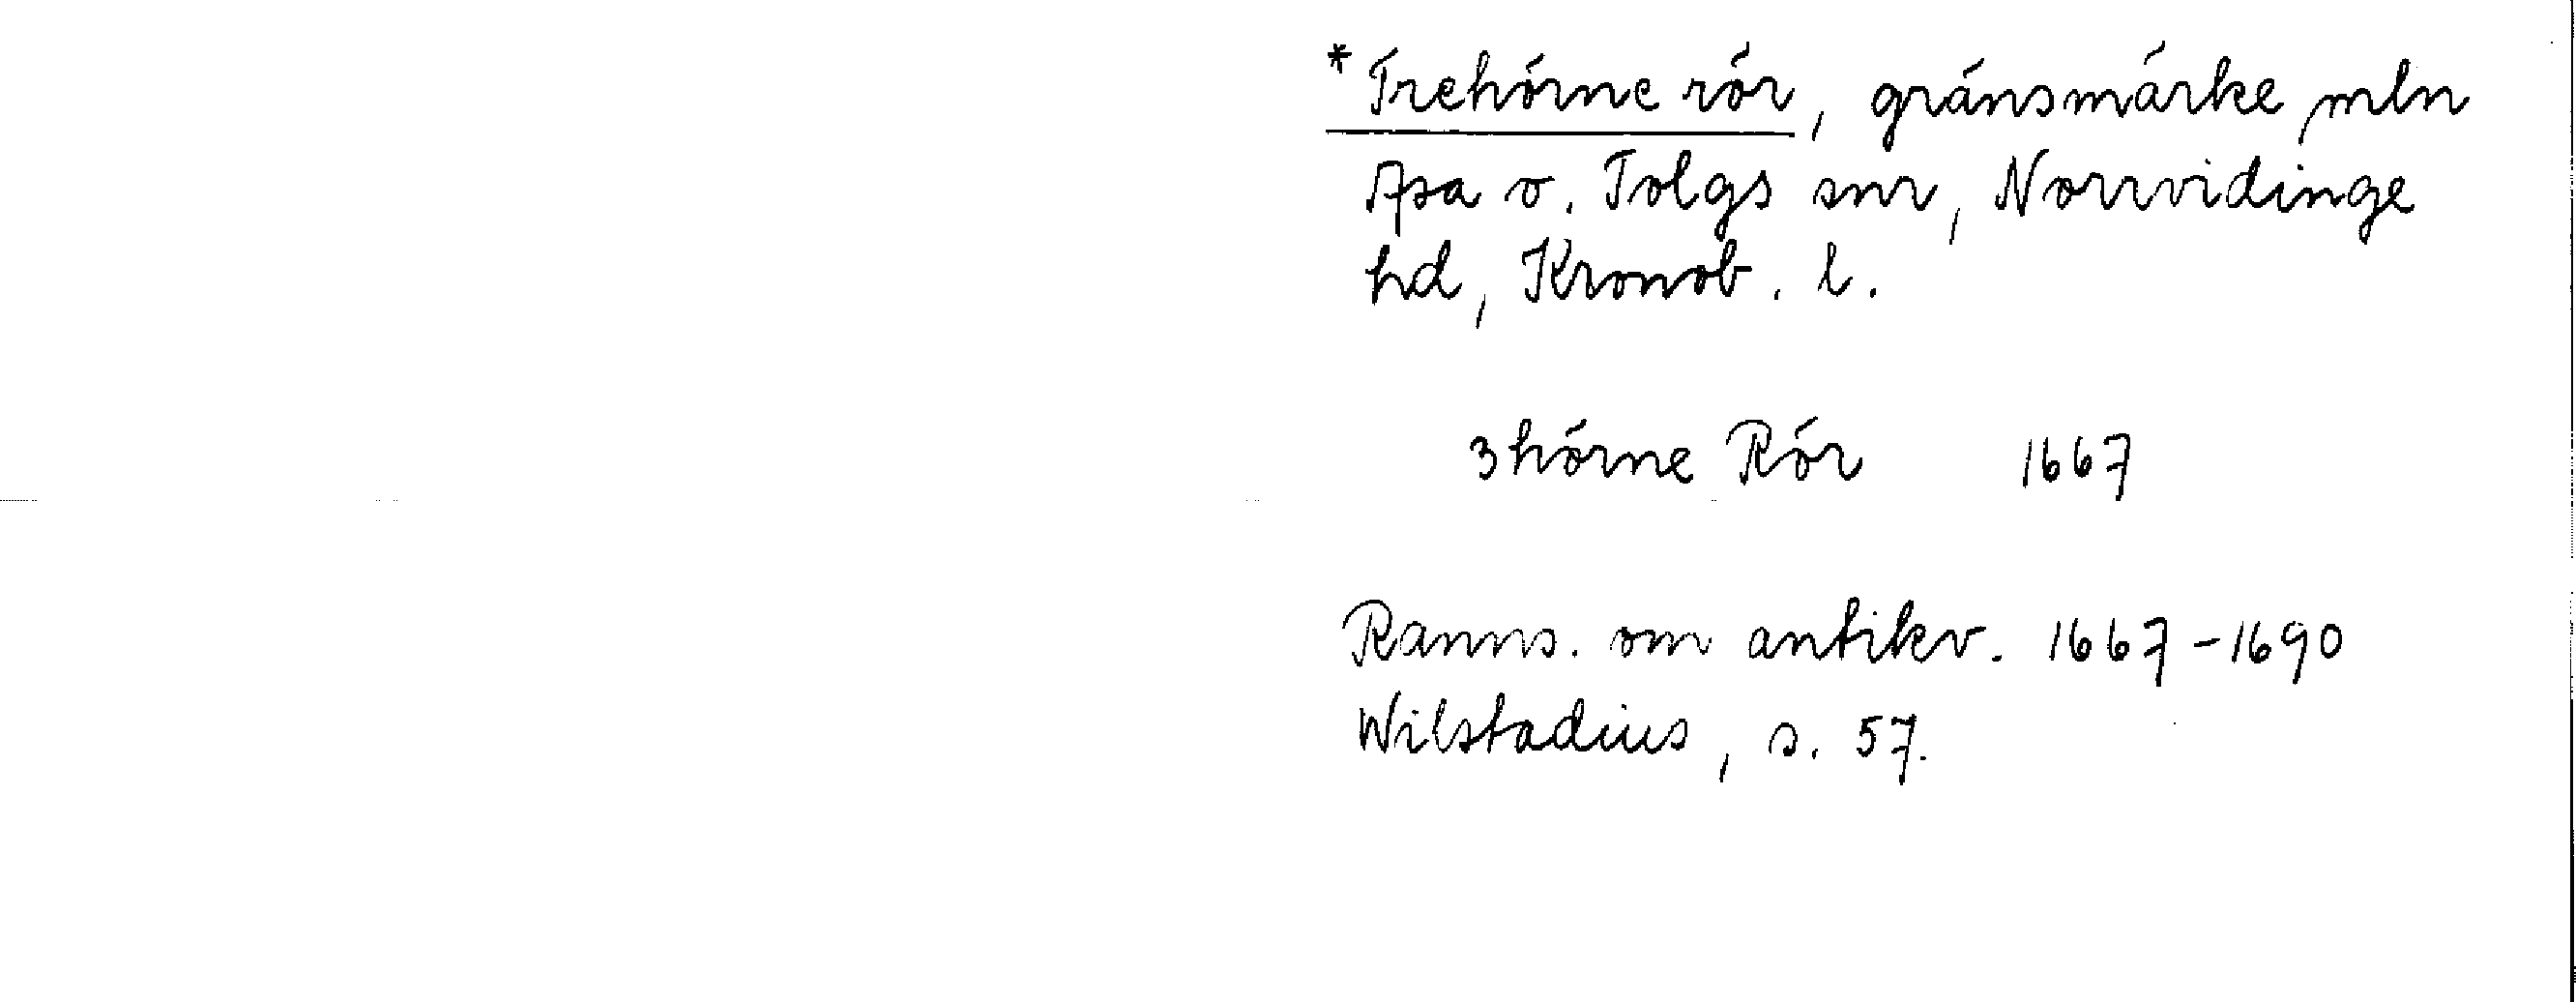 * Trehörne rör, gränsmärke, mln
Asa o. Tolgs snr, Norrvidinge
hd, Kronob. l.
3hörne Rör 1667
Ranns. om antikv. 1667-1690
Wilstadius, s. 57.